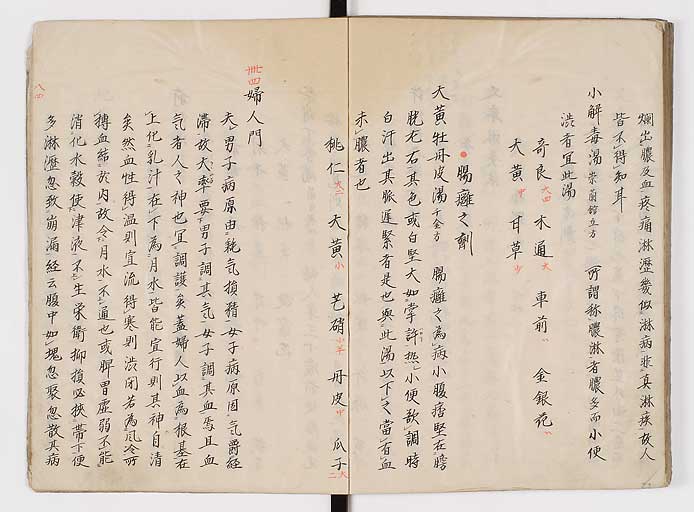 爛出膿及血疼痛淋瀝幾似淋病非真淋疾故人
皆不得知耳
小解毒湯 崇蘭館立方 所謂称膿淋者膿多而小便
渋者宜此湯
奇良 大四 木通 大 車前 〃 金銀花 〃
大黄 中 甘草 少
腸癰之劑
大黄牡丹皮湯 千金方 腸癰之為病小腹痞堅在臍
胱左右其色或白堅大如掌許熱小便欲調時
白汗出其脈遲緊者是也與此湯以下之當有血
赤膿者也
桃仁 大二 大黄 小 芒硝 小半 丹皮 中 瓜子 大二
卅四 婦人門
夫男子病原由耗气積精女子病原因气爵經
滯故大率要男子調其気女子調其血焉且血
気者人之神也宜調護矣蓋婦人以血為根基在
上化乳汁在下為月水皆能宜行則其神自清
矣然血性得温則宜流得寒則渋閉若為风冷所
搏血結於内故令月水不通也或脾胃虚弱不能
消化水穀使津液不生栄衛抑損必挾帯下便
多淋瀝忽致崩漏経云腹中如塊忽聚忽散其病
八四